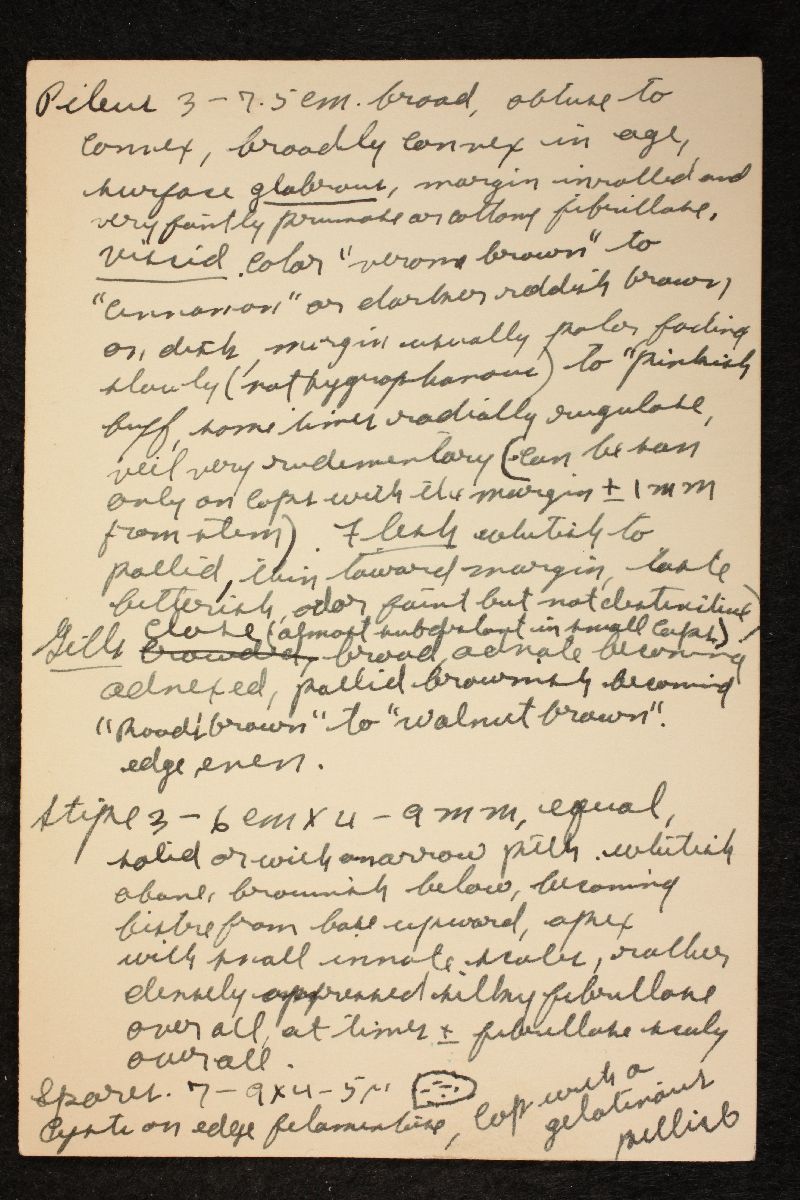 Pileus 3-7.5 cm. broad, obtuse to
convex, broadly convex in age,
surface glabrous, margin inrolled and
very faintly pruinose or cottony fibrillose,
viscid. Color "verona brown" to
"cinnamon" or darker reddish brown,
on disk, margin usually paler fading
slowly (not hygrophanous) to "pinkish
buff, sometimes radially rugulose,
veil very rudimentary (can be seen
only on caps with the margin ± 1 mm
from stem). Flesh whitish to
pallid, thin toward margin, taste
bitterish, odor faint but not distinctive,
Gills close (almost subdistant in small caps)
crowded, broad, adnate becoming
adnexed, pallid brownish becoming
"Rood's brown" to "walnut brown".
edge even.
Stipe 3-6 cm X 4-9 mm, equal,
solid or with a narrow pith. whitish
above, brownish below, becoming
bistre from base upward, apex
with small innate scales, rather
densely appressed silky fibrillose
over all, at times ± fibrillose scaly
overall.
Spores. 7-9 X 4-5 µ
Cysts on edge filamentose, cap with a
gelatinous
pellicle